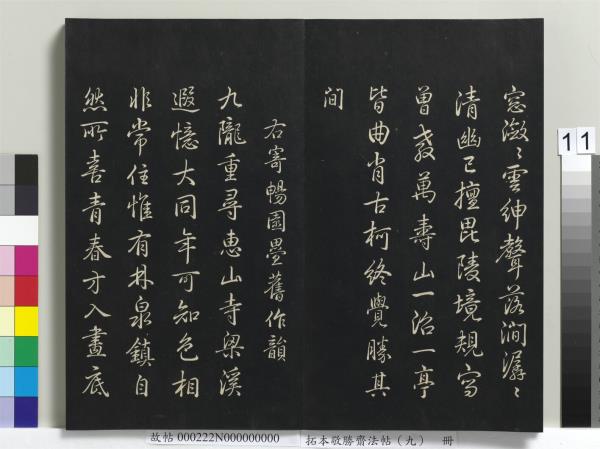 窓潋〻雲紳聲落澗潺〻
清幽已擅毘陵境規寫
曾教萬壽山一沼一亭
皆曲肖古柯終覺勝其
間
右寄暢園疊舊作韻
九隴重尋惠山寺梁溪
遐憶大同年可知色相
非常住惟有林泉鎮自
然所喜青春方入畫底
11
故帖 000222N000000000
拓本敬勝齋法帖（九） 冊